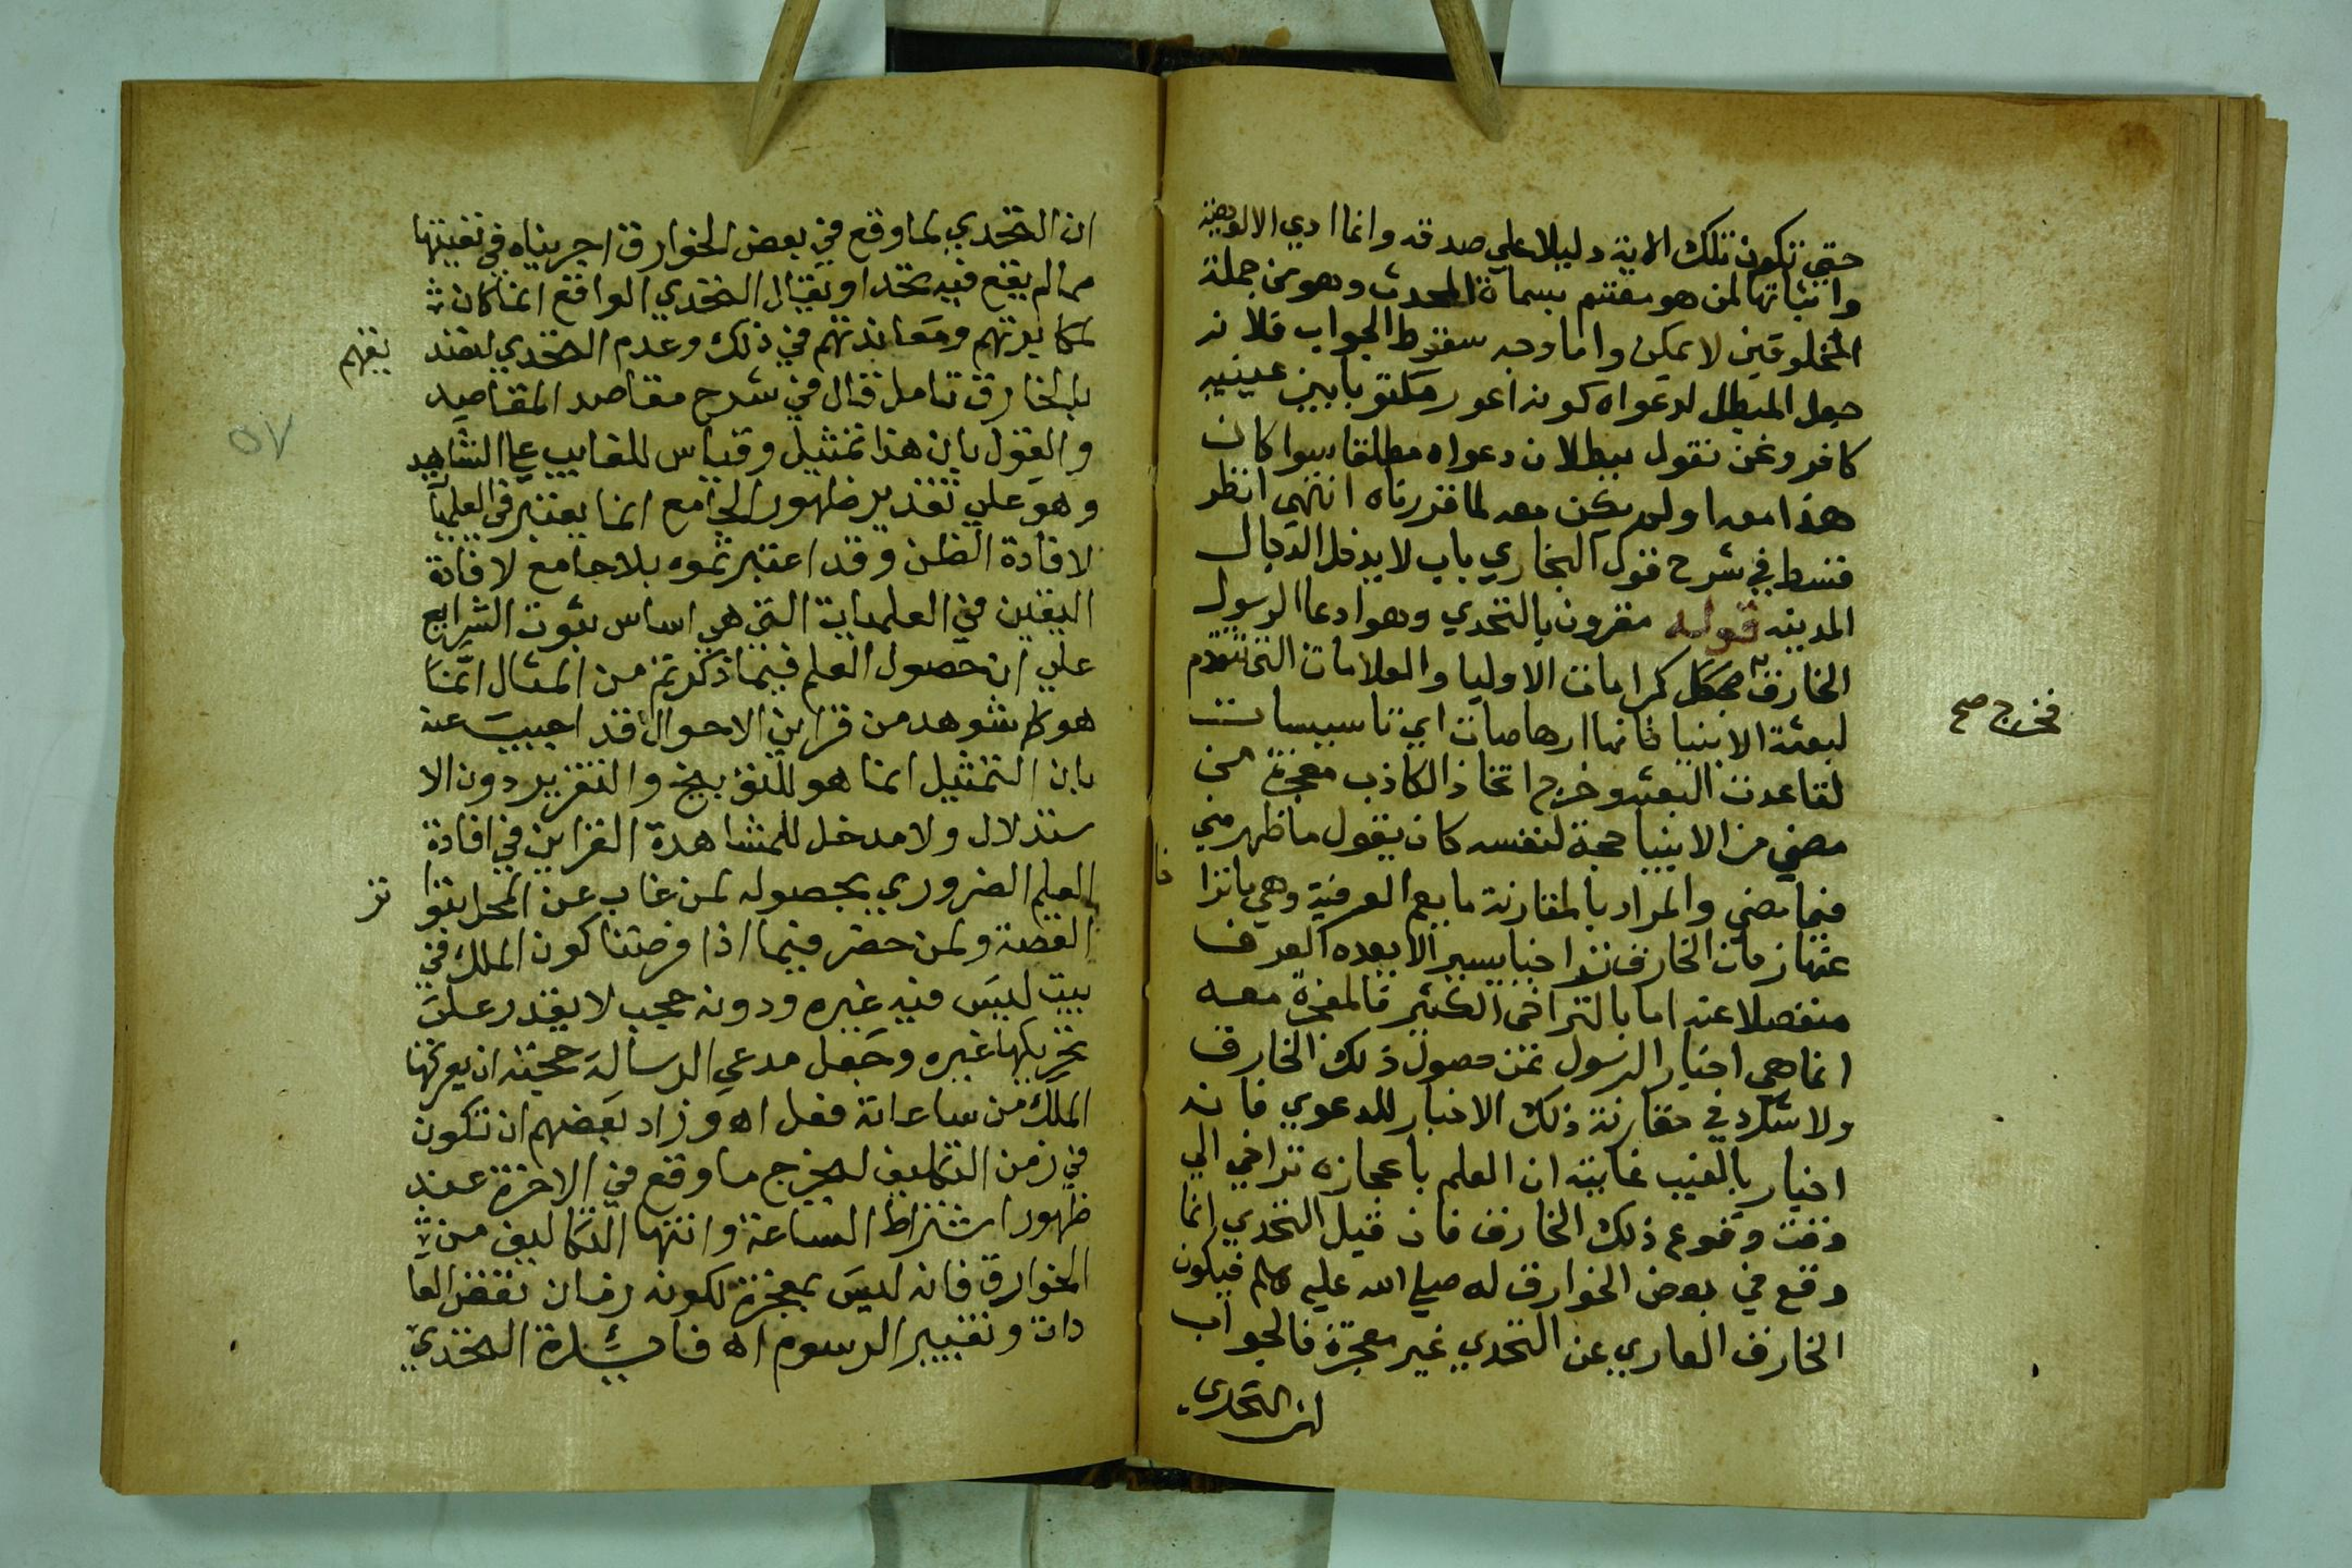 حتي تكون تلك الاية دليلا علي صدقه وانما ادي الالوهية
واثباتها لمن هو مقتم بسماة المحدث وهو من جملة
المخلوقين لا يمكن واما وجه سقوط الجواب فلانه
جعل المبطل لدعواه كونه اعور مكتوبا بين عينيه
كافر ونحن نقول ببطلان دعواه مطلقا سوا كان
هذا معه او لم يكن معه لما قررناه انتهي انظر
قسط في شرح قول البخاري باب لا يدخل الدجال
المدينه قوله مقرون بالتحدي وهو ادعا الرسول
الخارق كرامات الاوليا والعلامات التي تتقدم
لبعثة الانبيا فانها ارهاصات اي تاسيسات
لقاعدت البعثه وخرج اتخاذ الكاذب معجزة من
فخرج صح
مضي من الانبيا حجة لنفسه كان يقول ما ظهر مني
فيما مضي والمراد بالمقارنة ما يعم العرفية وهي بان ترا
خا
عنها زمان الخارق تراخيا يسيرا لا يعده العرف
منفصلا عنه اما بالتراخي الكثير فالمعجزة معه
انما هي اخبار الرسول عن حصول ذلك الخارق
ولا شك في مقارنة ذلك الاخبار للدعوي فانه
اخبار بالغيب غايته ان العلم باعجازه تراخي الي
وقت وقوع ذلك الخارق فان قيل التحدي انما
وقع في بعض الخوارق له صلي الله عليه وسلم فيكون
الخارق العاري عن التحدي غير معجزة فالجواب
ان التحدي
ان التحدي لما وقع في بعض الخوارق اجريناه في بقيتها
مما لم يقع فيه تحد او يقال التحدي الواقع انما كان
لمكابرتهم ومعاندتهم في ذلك وعدم التحدي لعند
يقهم
بالخارق تامل قال في شرح مقاصد المقاصد
٥٧
والقول بان هذا تمثيل وقياس للغايب علي الشاهد
وهو علي تقدير ظهور الجامع انما يعتبر في العلميا
لافادة الظن وقد اعتبرتموه بلا جامع لافادة
اليقين في العلميات التي هي اساس ثبوت الشرايع
علي ان حصول العلم فيما ذكرتم من المثال انما
هو لما شوهد من قراين الاحوال قد اجيب عنه
بان التمثيل انما هو للتوبيخ والتقرير دون الا
ستدلال ولا مدخل للمشاهدة القراين في افادة
العلم الضروري بحصوله لمن غاب عن المحل بتوا
تر
القصة ولمن حضر فيما اذا فرضنا كون الملك في
بيت ليس فيه غيره ودونه حجب لا يقدر علي
تحريكها غيره وجعل مدعي الرسالة حجته ان يحركها
الملك من ساعاته ففعل اه وزاد بعضهم ان تكون
في زمن التكليف ليخرج ما وقع في الاخرة عند
ظهور اشتراط الساعة وانتها التكاليف من
الخوارق فانه ليس بمعجزة لكونه زمان نقض العا
دات وتغيير الرسوم اه فاشارة التحدي